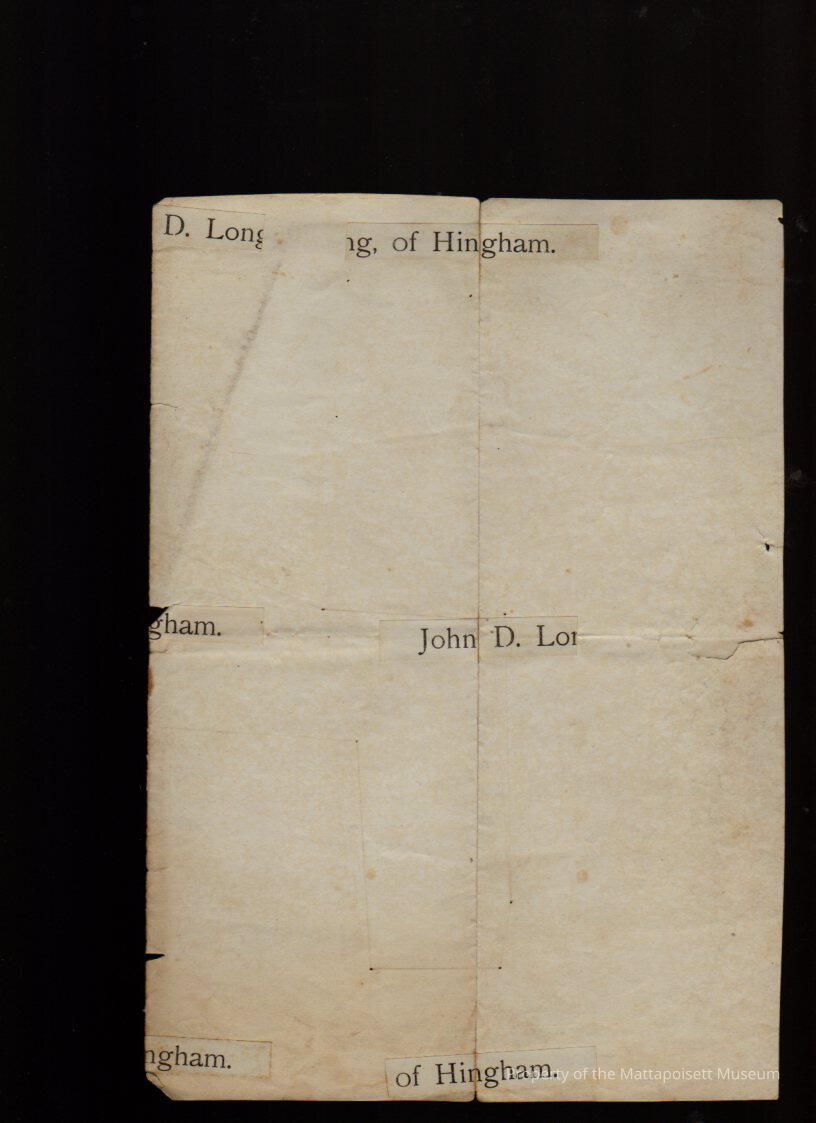 D. Long
ng, of Hingham.
gham.
John D. Lon
ngham.
of Hingham.
Property of the Mattapoisett Museum